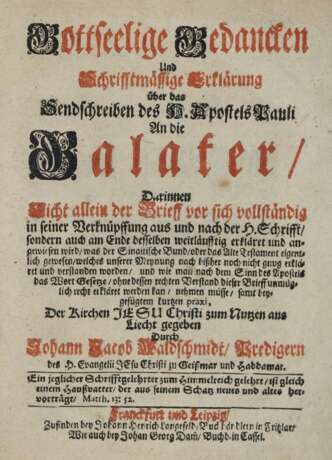 Gottseelige Gedancken
Und
Schrifftmässige Erklärung
über das
Sendschreiben des H. Apostels Pauli
An die
Galater/
Darinnen
Nicht allein der Brieff vor sich vollständig
in seiner Verknüpffung aus und nach der H. Schrifft/
sondern auch am Ende desselben weitläufftig erkläret und an-
gewiesen wird/ was der Sinaitische Bund/ oder das Alte Testament eigent-
lich gewesen/ welches unserer Meynung nach bißher noch nicht gnug erklä-
ret und verstanden worden/ und wie man nach dem Sinn des Apostels
das Wort Gesetze/ ohne dessen rechten Verstand dieser Brieff unmüg-
lich recht erkläret werden kan/ nehmen müsse/ samt bey-
gefügtem kurtzen praxi,
Der Kirchen JESU Christi zum Nutzen aus
Liecht gegeben
Durch
Johann Jacob Waldschmidt/ Predigern
des H. Evangelii JEsu Christi zu Geißmar und Haddamar.
Ein jeglicher Schrifftgelehrter zum Himmelreich gelehrt/ ist gleich
einem Haußvatter/ der aus seinem Schatz neues und altes her-
vorträgt/ Matth. 13: 52.
Franckfurt und Leipzig/
Zufinden bey Johann Henrich Buchhändlern in Fritzlar/
Wie auch bey Johan Georg Buchb. in Cassel.